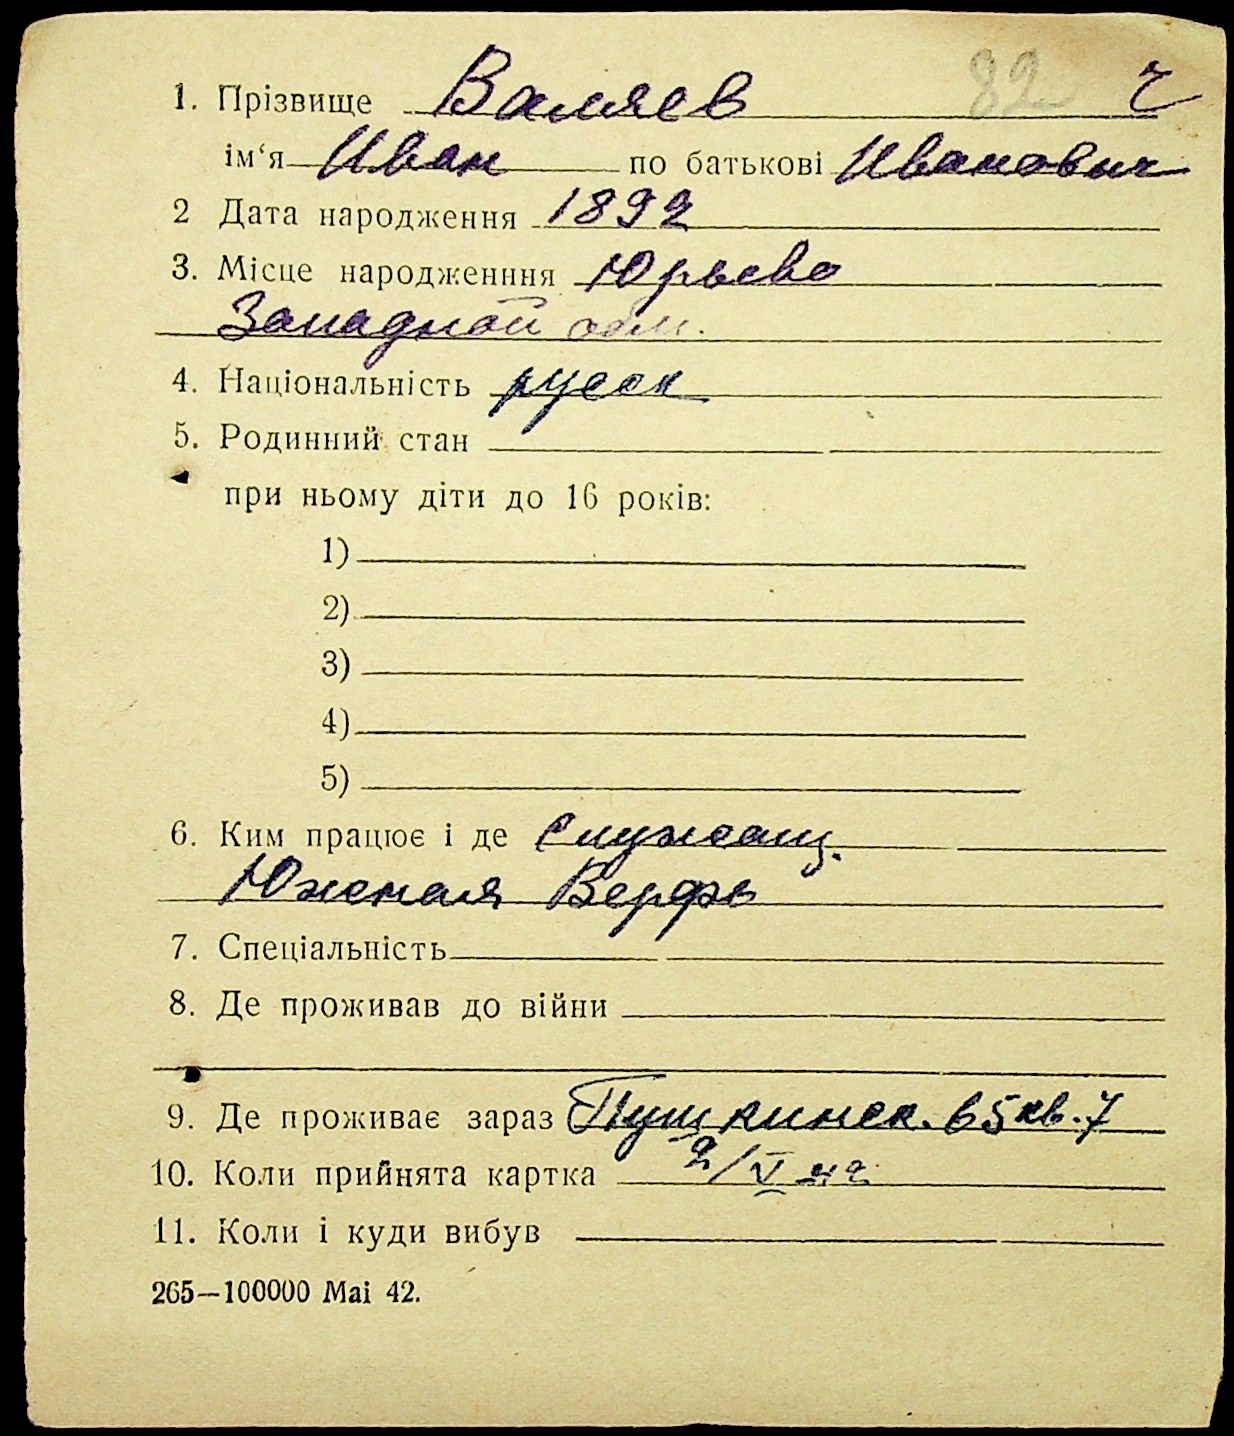 82 ч
1. Прізвище Валяев
ім‘я Иван по батькові Иванович
2 Дата народження 1892
3. Місце народженння Юрьево
Западной обл.
4. Національність русск
5. Родинний стан
при ньому діти до 16 років:
1)
2)
3)
4)
5)
6. Ким працює і де Служащ.
Южная Верфь
7. Спеціальність
8. Де проживав до війни
9. Де проживає зараз Пушкинск. 65 кв. 7
10. Коли прийнята картка 2/V 42
11. Коли і куди вибув
265—100000 Mai 42.